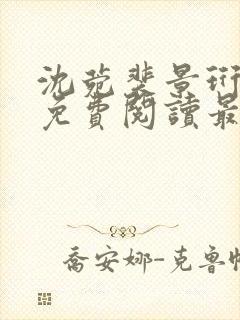 沈菀裴景珩
免費閱讀最
喬安娜-克魯帕